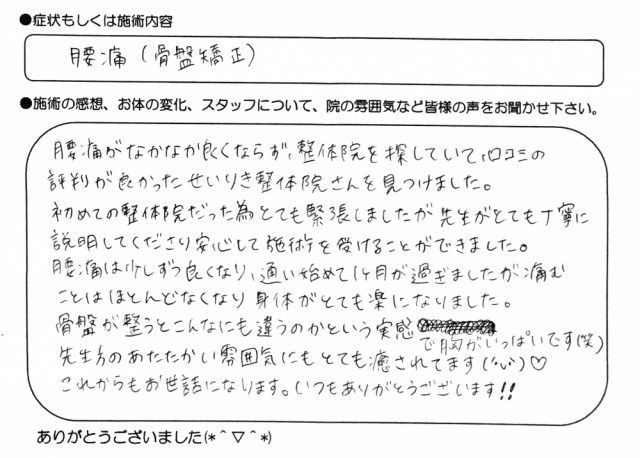 ●症状もしくは施術内容
腰痛（骨盤矯正）
●施術の感想、お体の変化、スタッフについて、院の雰囲気など皆様の声をお聞かせ下さい。
腰痛がなかなか良くならず、整体院を探していて、口コミの
評判が良かったせいりき整体院さんを見つけました。
初めての整体院だった為とても緊張しましたが先生がとても丁寧に
説明してくださり安心して施術を受けることができました。
腰痛は少しずつ良くなり、通い始めて1ヶ月が過ぎましたが痛む
ことはほとんどなくなり身体がとても楽になりました。
骨盤が整うとこんなにも違うのかという実感
で胸がいっぱいです(笑)
先生方のあたたかい雰囲気にもとても癒されてます(^^)♡
これからもお世話になります。いつもありがとうございます!!
ありがとうございました(*＾▽＾*)